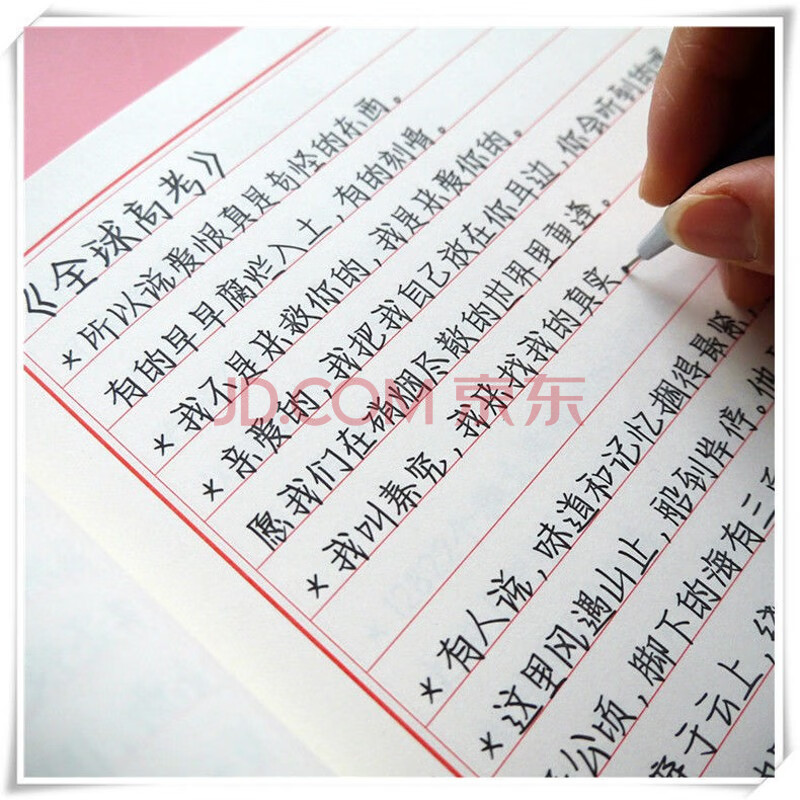 《全球高考》
* 所以说爱恨真是奇怪的东西。
有的早早腐烂入土，有的刻骨。
* 我不是来救你的，我是来爱你的。
* 亲爱的，我把我自己放在你耳边，你会听到
愿我们在硝烟尽散的世界里重逢。
* 我叫秦究，我来找我的真实
* 有人说，味道和记忆捆得最紧，
* 这里风遇山止，船到岸停。他
公顷，脚下的海有三
于云上，
JD.COM 京东